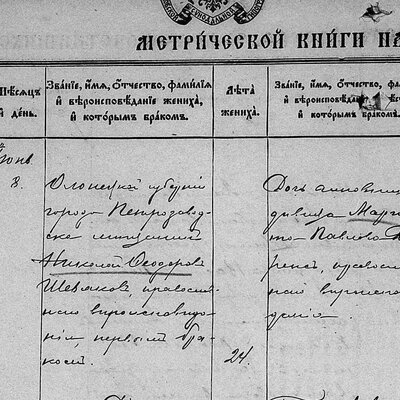 МЕТРИЧЕСКОЙ КНИГИ НА
Мѣсяцъ
и день.
Званіе, имя, отчество, фамилія
и вѣроисповѣданіе жениха,
и которымъ бракомъ.
Лѣта
жениха.
Званіе, имя, отчество, фам
и вѣроисповѣданіе
и которымъ бракомъ.
Іюнь
8.
Олонецкой губерніи
города Петрозавод-
ска мѣщанинъ
Николай Ѳеодоровъ
православ-
наго вѣроисповѣда-
нія, первымъ бра-
комъ.
24.
Дочь чиновника
дѣвица
Павлова
правосл
наго вѣроиспов
данія.